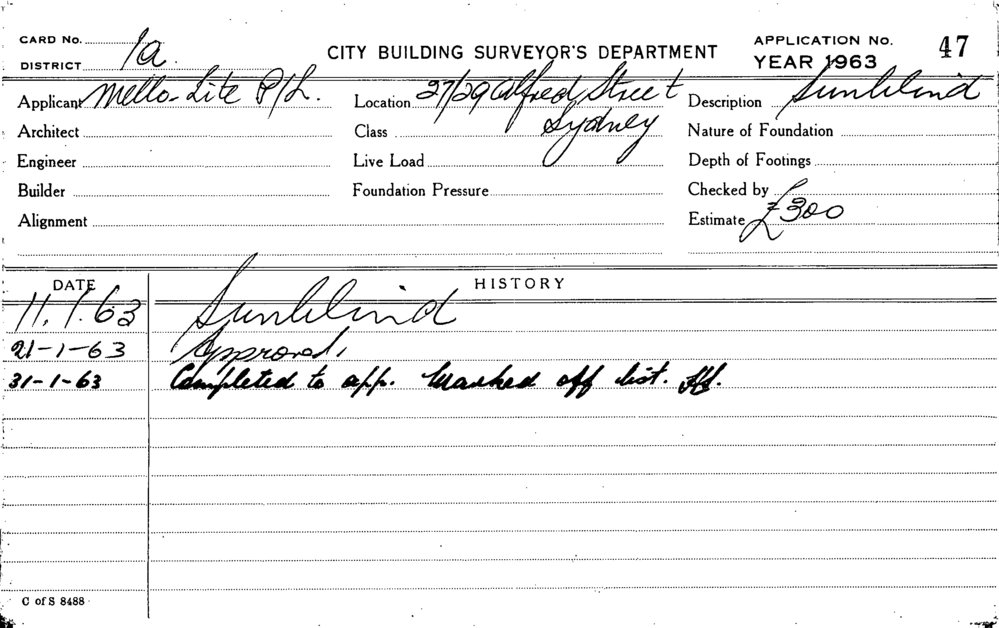 CARD No.
DISTRICT 1a.
CITY BUILDING SURVEYOR'S DEPARTMENT
APPLICATION No. 47
YEAR 1963
Applicant Mello-Lite P/L.
Location 27/29 Alfred Street
Sydney
Description Sunblind
Architect
Class
Nature of Foundation
Engineer
Live Load
Depth of Footings
Builder
Foundation Pressure
Checked by
Alignment
Estimate £300
DATE HISTORY
11.1.63 Sunblind
21-1-63 Approved.
31-1-63 Completed to app. Marked off list.
C of S 8488